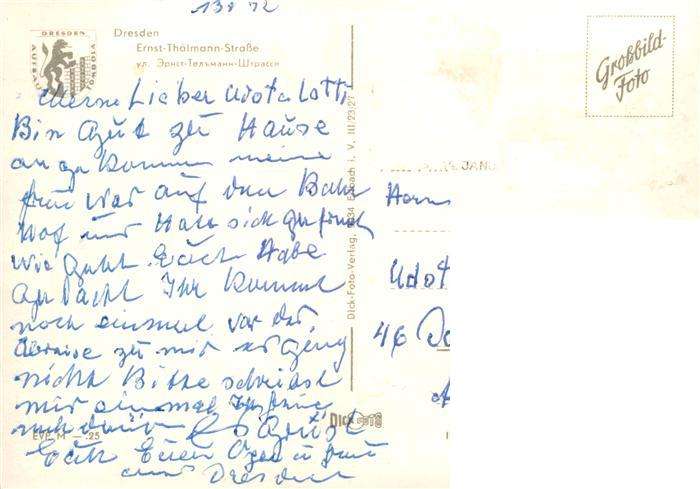 13 8 72
DRESDEN
AUFBAU
TOMBOLA
Dresden
Ernst-Thälmann-Straße
ул. Эрнст-Тельманн-Штрассе
Großbild-
Foto
Lieber Udo + Lotti
Bin Gut zu Hause
an ge kommen meine
frau war auf den Bahn
hof und Hatt sich gefreut
wie geht Euch Habe
gedacht Ihr kommt
noch einmal vor der
Abreise zu mir es ging
nicht Bitte schreibt
mir einmal
Es Grüst
Euch Euer u frau
aus Dresden
Dick-Foto-Verlag, 9234 Erlbach i. V. III 23/27
JANU
Udo
46 Do
EVP M -.25
DICK FOTO